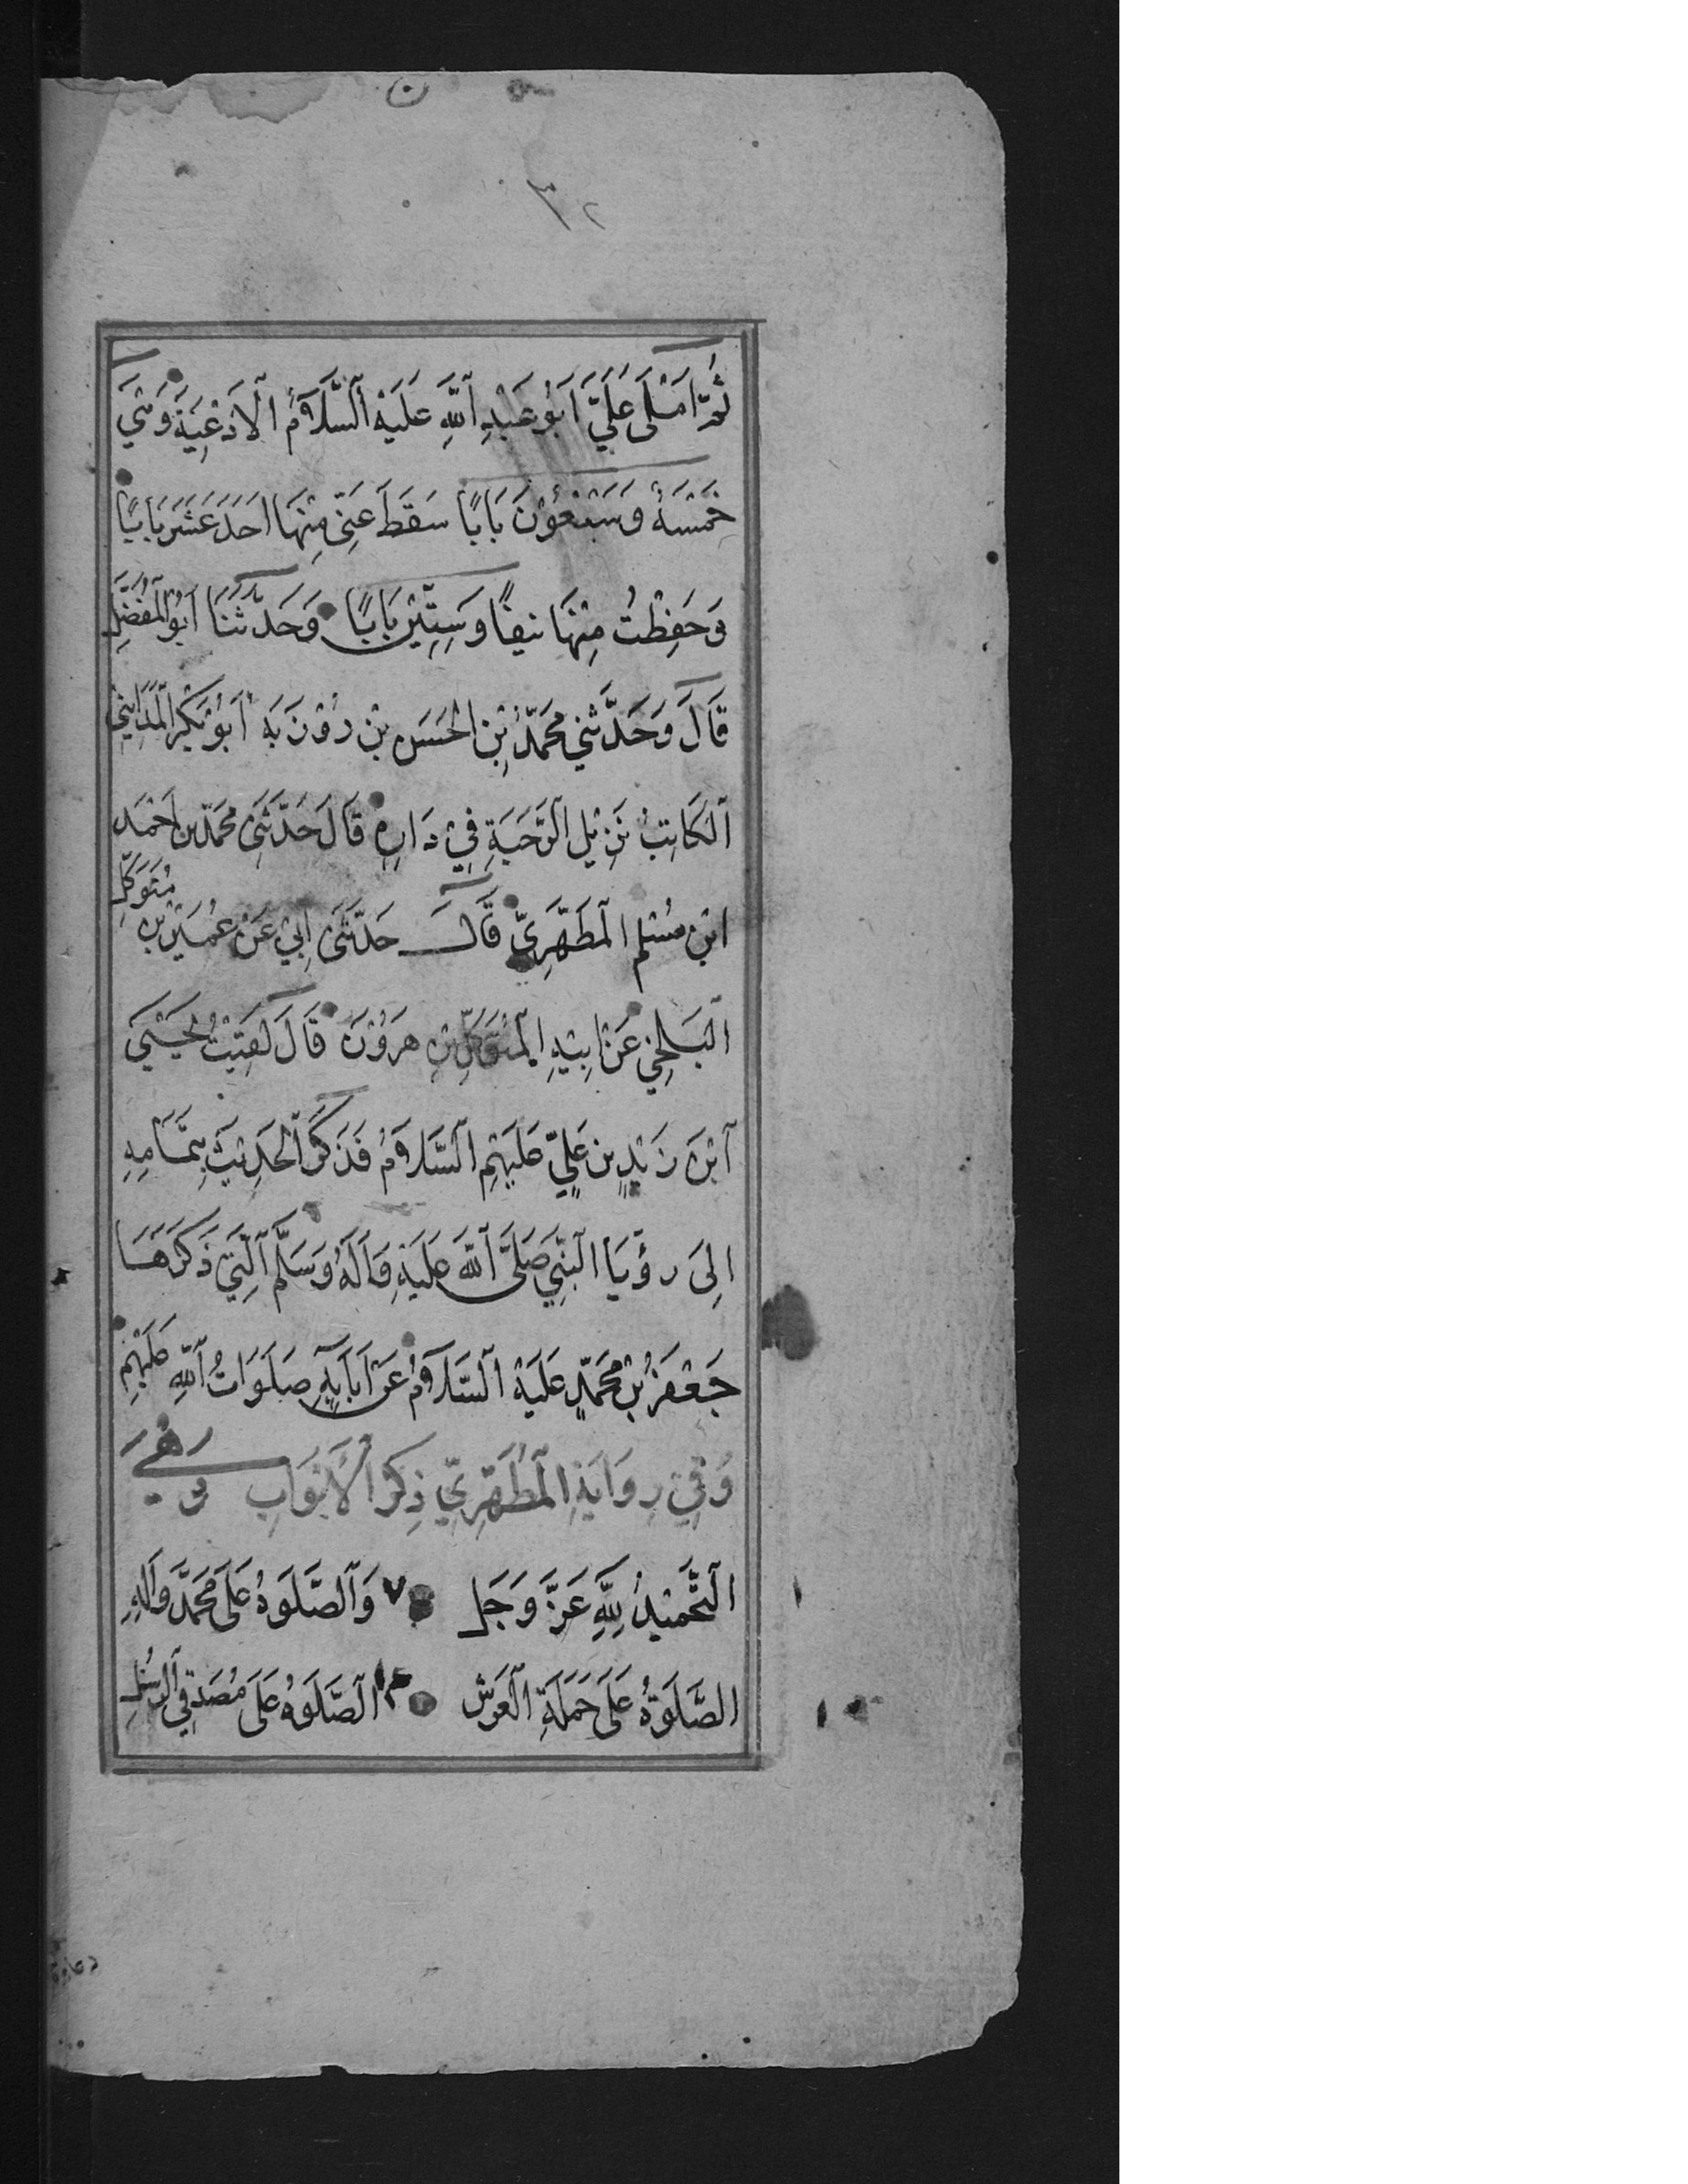 ٣٢
ثُمَّ اَمْلٰى عَلَيَّ اَبُو عَبْدِ اللّٰهِ عَلَيْهِ السَّلَامُ الْاَدْعِيَةَ وَهِيَ
خَمْسَةٌ وَسَبْعُوْنَ بَابًا سَقَطَ عَنِّىْ مِنْهَا اَحَدَ عَشَرَ بَابًا
وَحَفِظْتُ مِنْهَا نَيِفًا وَسِتِّيْنَ بَابًا وَحَدَّثَنَا اَبُو الْمُفَضَّلِ
قَالَ وَحَدَّثَنِي مُحَمَّدُ بْنِ الْحَسَنِ بْنِ رُوْزْبَه اَبُوْ بَكْرٍ الْمَدَايِنِيُّ
الْكَاتِبُ نَزِيْلِ الرَّحَبَةِ فِيْ دَارِهِ قَالَ حَدَّثَنِىْ مُحَمَّدُ بْنُ اَحْمَدَ
ابْنِ مُسْلِمٍ الْمُطَهَّرِيِّ قَالَ حَدَّثَنِىْ اَبِيْ عَنْ عُمَيْرِ بْنِ مُتَوَكِّلٍ
الْبَلْخِيِّ عَنْ اَبِيْهِ الْمُتَوَكِّلِ بْنِ هٰرُوْنَ قَالَ لَقِيْتُ يَحْيَىٰ
ابْنَ زَيْدِ بْنِ عَلِيٍّ عَلَيْهِمُ السَّلَامُ فَذَكَرَ الْحَدِيْثَ بِتَمَامِهِ
اِلٰى رُؤْيَا النَّبِيِّ صَلَّى اللّٰهُ عَلَيْهِ وَاٰلِهٖ وَسَلَّمَ الَّتِيْ ذَكَرَهَا
جَعْفَرُ بْنُ مُحَمَّدٍ عَلَيْهِ السَّلَامُ عَنْ اٰبَائِهِ صَلَوَاتُ اللّٰهِ عَلَيْهِمْ
وَفِيْ رِوَايَةِ الْمُطَهَّرِيِّ ذِكْرُ الْاَبْوَابِ وَهِيَ
التَّحْمِيْدُ لِلّٰهِ عَزَّ وَجَلَّ ٧ وَالصَّلَوٰةُ عَلٰى مُحَمَّدٍ وَاٰلِهٖ
الصَّلَوٰةُ عَلٰى حَمَلَةِ الْعَرْشِ الصَّلَوٰةُ عَلٰى مُصَدِّقِي الرُّسُلِ